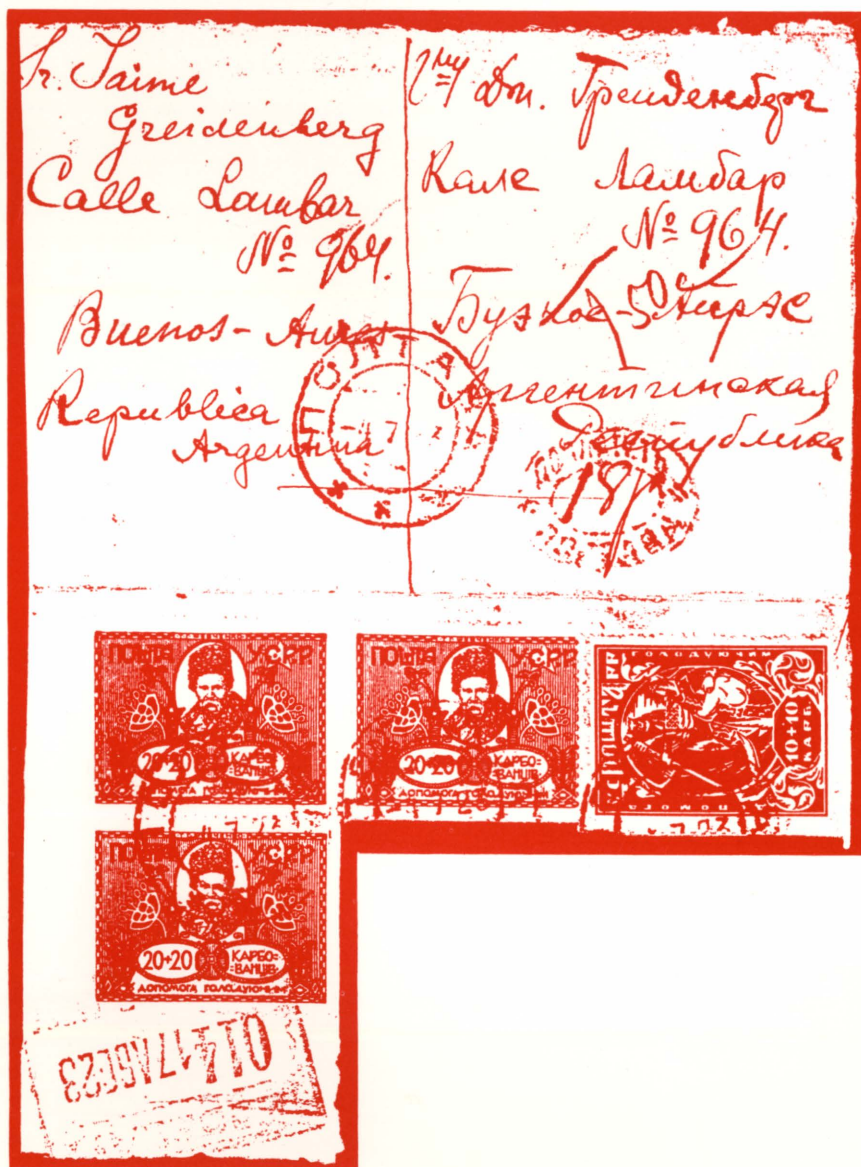 Sr. Jaime
Greidenberg
Calle Lambar
№ 964.
Buenos-Aires
Republica
Argentina
Гну Дм. Грейденберг
Кале Ламбар
№ 964.
Буэнос-Айрэс
Аргентинская
Республика
50
18
ПОЛТАВА
ПОШТА УСРР
20+20 КАРБО=
=ВАНЦІВ
ДОПОМОГА ГОЛОДУЮЧИМ
ПОШТА УСРР
20+20 КАРБО=
=ВАНЦІВ
ДОПОМОГА ГОЛОДУЮЧИМ
ГОЛОДУЮЧИМ
ПОШТА УСРР
10+10
КАРБ
ДОПОМОГА
ПОШТА УСРР
20+20 КАРБО=
=ВАНЦІВ
ДОПОМОГА ГОЛОДУЮЧИМ
014 17
23